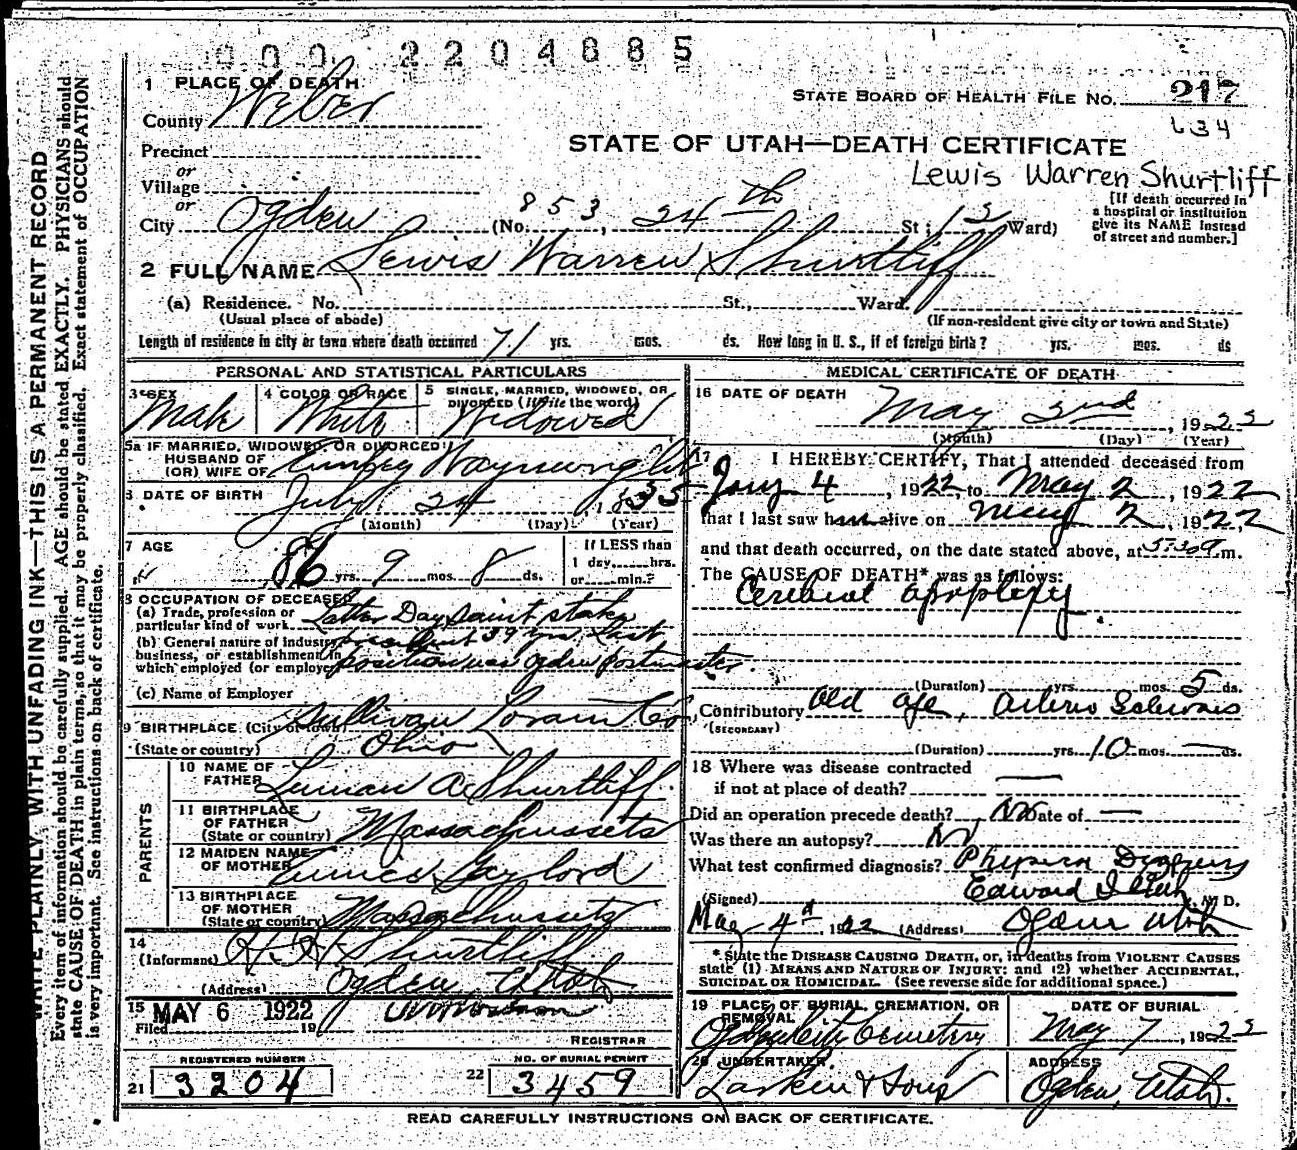 000 2204885
1 PLACE OF DEATH
County Weber
STATE BOARD OF HEALTH FILE NO. 217
634
Precinct
or
Village
or
STATE OF UTAH—DEATH CERTIFICATE
Lewis Warren Shurtliff
[If death occurred in
a hospital or institution
give its NAME instead
of street and number.]
City Ogden (No. 853, 24th St; Ward)
2 FULL NAME Lewis Warren Shurtliff
(a) Residence. No. St., Ward.
(Usual place of abode) (If non-resident give city or town and State)
Length of residence in city or town where death occurred 71 yrs. mos. ds. How long in U. S., if of foreign birth? yrs. mos. ds
PERSONAL AND STATISTICAL PARTICULARS
3 SEX 4 COLOR OR RACE 5 SINGLE, MARRIED, WIDOWED, OR
DIVORCED (Write the word)
Male White Widowed
5a IF MARRIED, WIDOWED, OR DIVORCED
HUSBAND OF
(OR) WIFE OF
6 DATE OF BIRTH July 24, 1835
(Month) (Day) (Year)
7 AGE 86 yrs. 9 mos. 8 ds.
If LESS than
1 day, hrs.
or min.?
8 OCCUPATION OF DECEASED
(a) Trade, profession or
particular kind of work Latter Day Saint stake
(b) General nature of industry,
business, or establishment in
which employed (or employer)
president 39 yrs. Last
position was Ogden postmaster.
(c) Name of Employer
9 BIRTHPLACE (City or town) Sullivan Lorain Co.
(State or country) Ohio
PARENTS
10 NAME OF
FATHER Luman A. Shurtliff.
11 BIRTHPLACE
OF FATHER
(State or country) Massachussets
12 MAIDEN NAME
OF MOTHER Eunice Gaylord
13 BIRTHPLACE
OF MOTHER
(State or country) Massachussets
14
(Informant) Shurtliff
(Address) Ogden, Utah
15 MAY 6 1922
Filed 19
REGISTRAR
REGISTERED NUMBER NO. OF BURIAL PERMIT
21 3204 22 3459
MEDICAL CERTIFICATE OF DEATH
16 DATE OF DEATH
May 2nd, 1922
(Month) (Day) (Year)
17 I HEREBY CERTIFY, That I attended deceased from
Jany 4, 1922, to May 2, 1922
that I last saw him alive on May 2, 1922,
and that death occurred, on the date stated above, at 5:30 a.m.
The CAUSE OF DEATH* was as follows:
Cerebral apoplexy.
(Duration) yrs. mos. 5 ds.
Contributory Old age, Arterio Sclerosis
(SECONDARY)
(Duration) yrs. 10 mos. — ds.
18 Where was disease contracted
if not at place of death? —
Did an operation precede death? No Date of —
Was there an autopsy? No
What test confirmed diagnosis? Physical
(Signed) Edward I, M. D.
May 4th, 1922 (Address) Ogden Utah
* State the DISEASE CAUSING DEATH, or, in deaths from VIOLENT CAUSES
state (1) MEANS AND NATURE OF INJURY; and (2) whether ACCIDENTAL,
SUICIDAL OR HOMICIDAL. (See reverse side for additional space.)
19 PLACE OF BURIAL, CREMATION, OR
REMOVAL
Ogden City Cemetery
DATE OF BURIAL
May 7, 1922
20 UNDERTAKER
Larkin & Sons
ADDRESS
Ogden, Utah.
READ CAREFULLY INSTRUCTIONS ON BACK OF CERTIFICATE.
WRITE PLAINLY, WITH UNFADING INK—THIS IS A PERMANENT RECORD
Every item of information should be carefully supplied. AGE should be stated EXACTLY. PHYSICIANS should
state CAUSE OF DEATH in plain terms, so that it may be properly classified. Exact statement of OCCUPATION
is very important. See instructions on back of certificate.